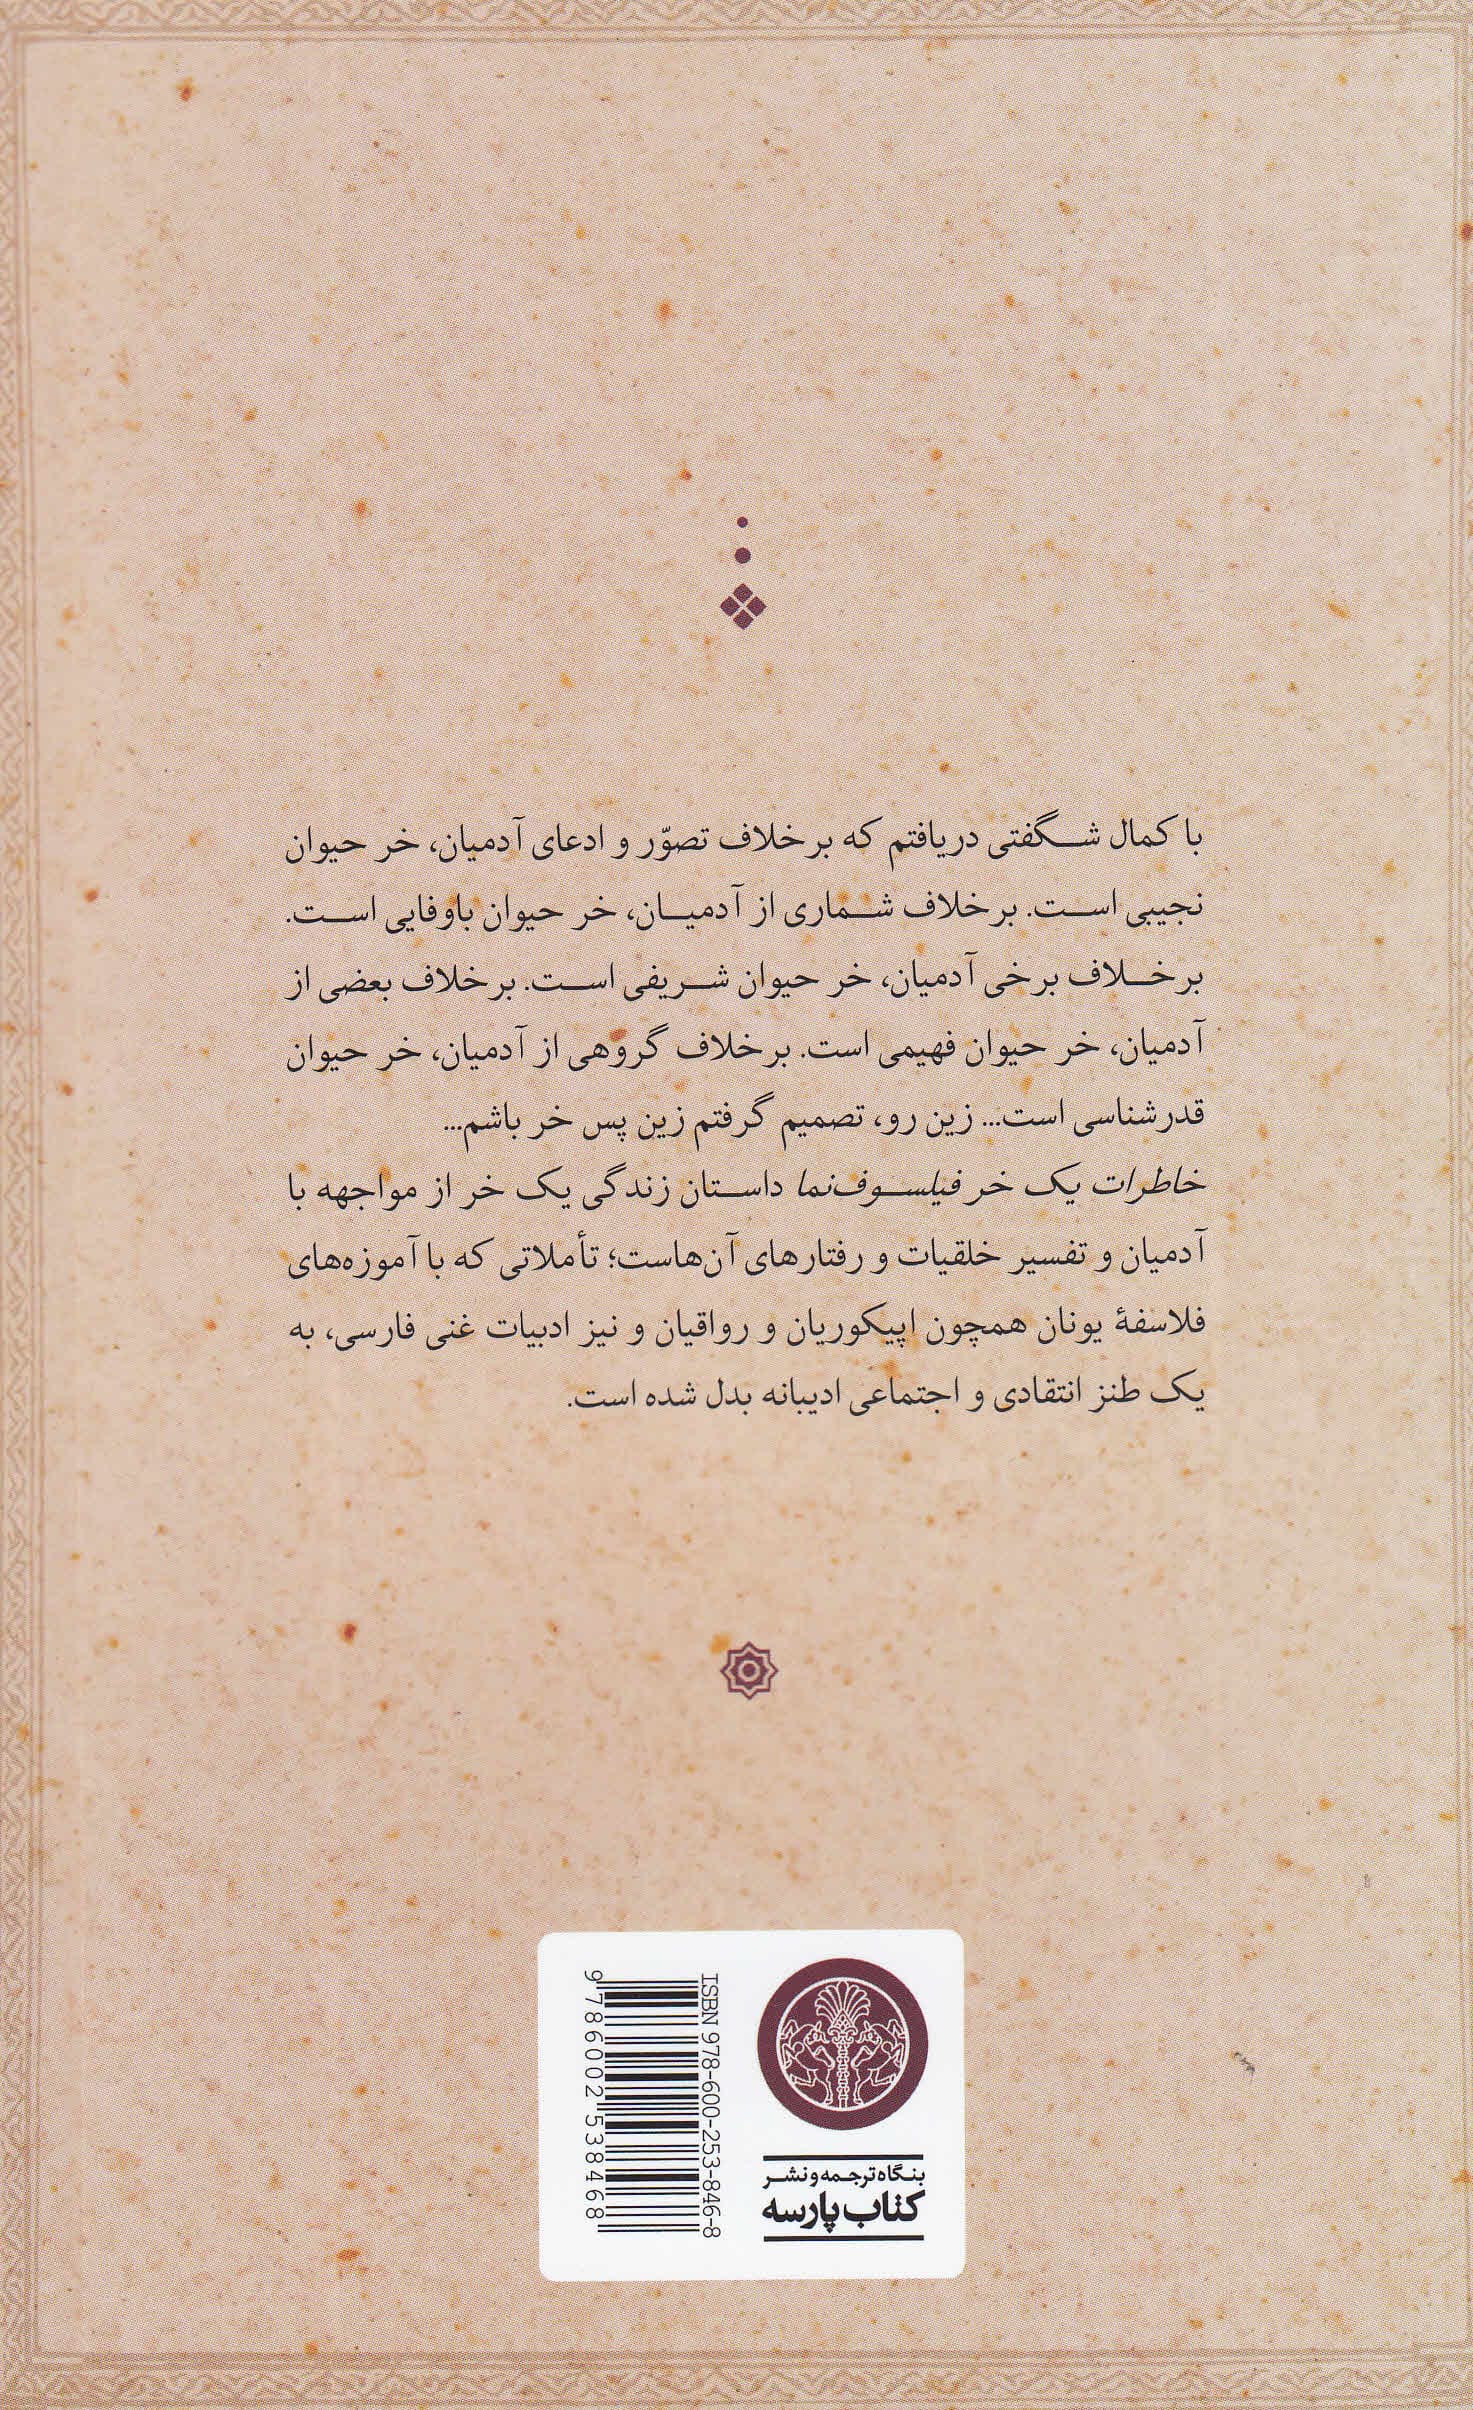 با کمال شگفتی دریافتم که برخلاف تصوّر و ادعای آدمیان، خر حیوان
نجیبی است. برخلاف شماری از آدمیان، خر حیوان باوفایی است.
برخلاف برخی آدمیان، خر حیوان شریفی است. برخلاف بعضی از
آدمیان، خر حیوان فهیمی است. برخلاف گروهی از آدمیان، خر حیوان
قدرشناسی است... زین رو، تصمیم گرفتم زین پس خر باشم...
خاطرات یک خر فیلسوف‌نما داستان زندگی یک خر از مواجهه با
آدمیان و تفسیر خلقیات و رفتارهای آن‌هاست؛ تأملاتی که با آموزه‌های
فلاسفهٔ یونان همچون اپیکوریان و رواقیان و نیز ادبیات غنی فارسی، به
یک طنز انتقادی و اجتماعی ادیبانه بدل شده است.
بنگاه ترجمه و نشر
کتاب پارسه
ISBN 978-600-253-846-8
9 786002 538468